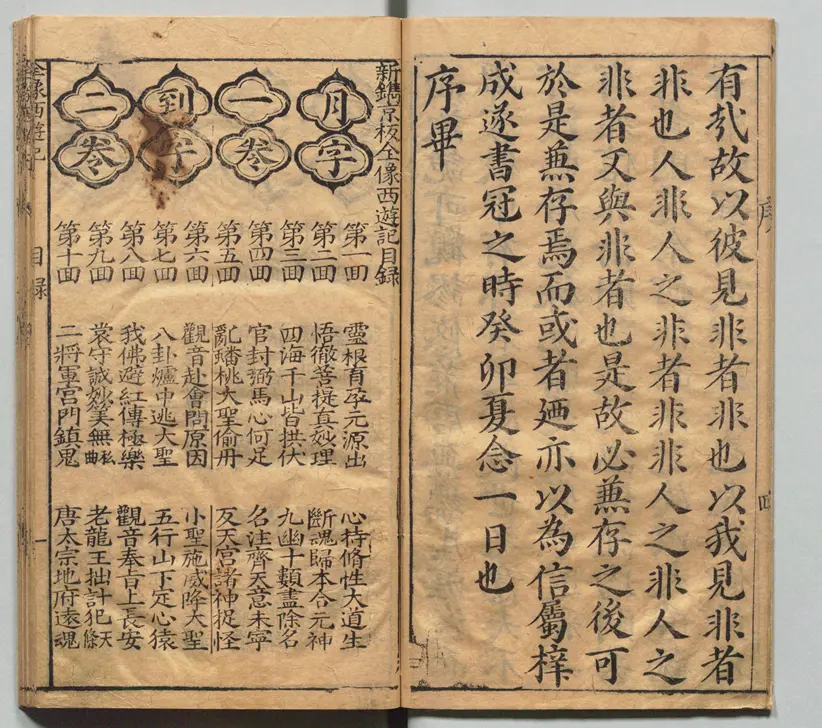 序
四
有哉故以彼見非者非也以我見非者
非也人非人之非者非非人之非人之
非者又與非者也是故必兼存之後可
於是兼存焉而或者廼亦以為信屬梓
成遂書冠之時癸卯夏念一日也
序畢
新鐫京板全像西遊記目錄
月字
一卷
第一囬 靈根有孕元源出 心持脩性大道生
第二囬 悟徹菩提真妙理 斷魂歸本合元神
第三囬 四海千山皆拱伏 九幽十類盡除名
第四囬 官封弼馬心何足 名注齊天意未寧
第五囬 亂蟠桃大聖偷丹 反天宮諸神捉怪
到字
二卷
第六囬 觀音赴會問原因 小聖施威降大聖
第七囬 八卦爐中逃大聖 五行山下定心猿
第八囬 我佛避紅傳極樂 觀音奉旨上長安
第九囬 袁守誠妙筭無私曲 老龍王拙計犯天條
第十囬 二將軍宮門鎮鬼 唐太宗地府還魂
全像西遊記
目錄
一